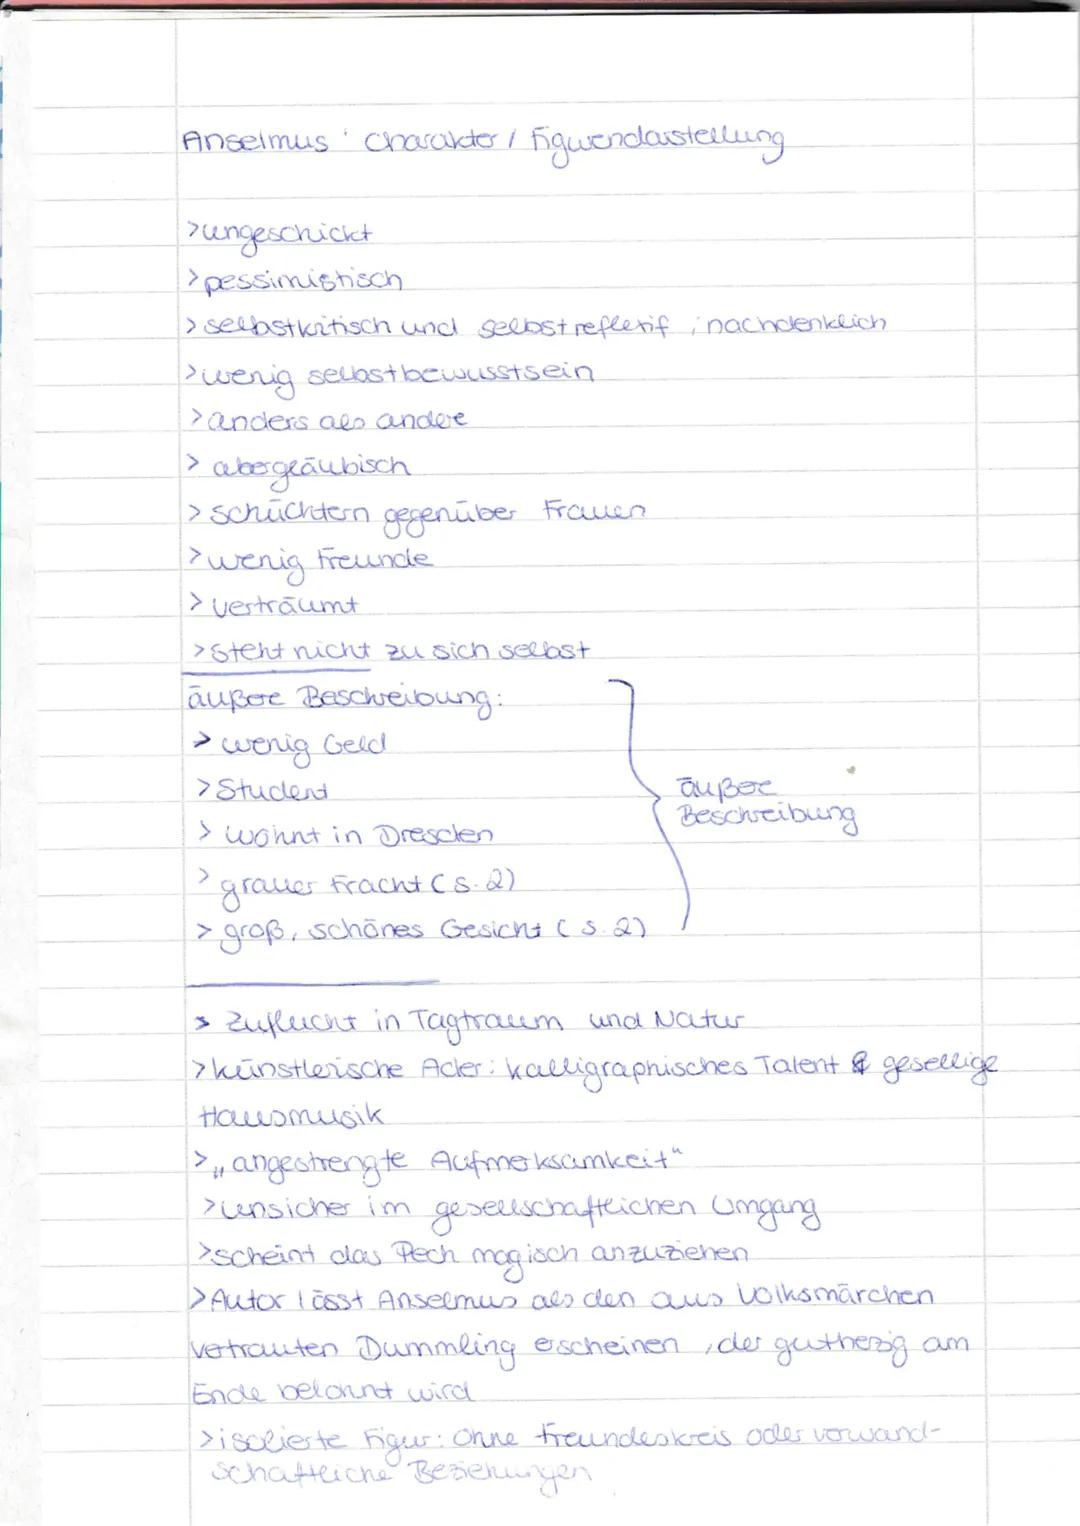 Anselmus ' Charakter / Figurendarstellung
>ungeschickt
>pessimistisch
>selbstkritisch und selbstreflexif, nachdenklich
>wenig selbstbewusstsein
>anders als andere
> abergläubisch
> schüchtern gegenüber Frauen
>wenig Freunde
> verträumt
>steht nicht zu sich selbst
äußere Beschreibung:
> wenig Geld
>Student
> wohnt in Dresden
> grauer Fracht (s.2)
> groß, schönes Gesicht (s.2)
äußere
Beschreibung
> Zuflucht in Tagtraum und Natur
>künstlerische Ader: kalligraphisches Talent & gesellige
Hausmusik
>„angestrengte Aufmerksamkeit“
>unsicher im gesellschaftlichen Umgang
>scheint das Pech magisch anzuziehen
>Autor lässt Anselmus als den aus Volksmärchen
vertrauten Dummling erscheinen, der gutherzig am
Ende belohnt wird
>isolierte Figur: Ohne Freundeskreis oder verwand-
schaftliche Beziehungen